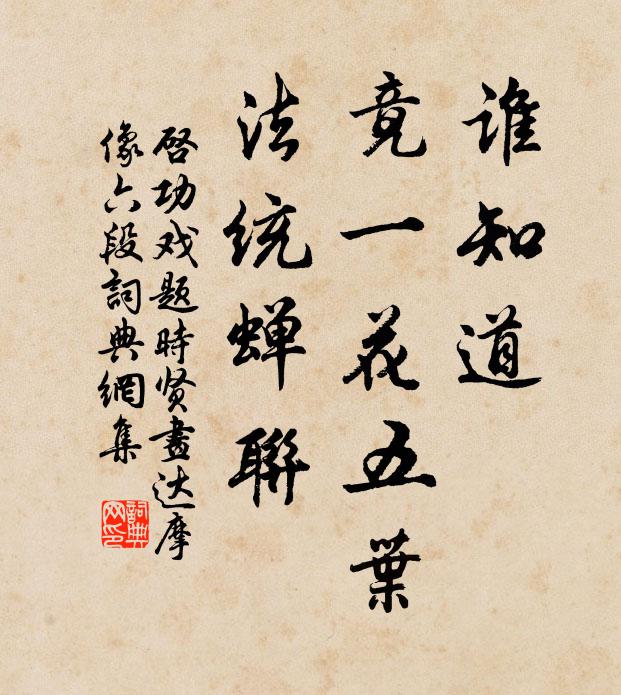 谁知道
竟一花五葉
法统蝉聯
啓功戏题時贤畫达摩
像六段詞典網集
詞典
网印